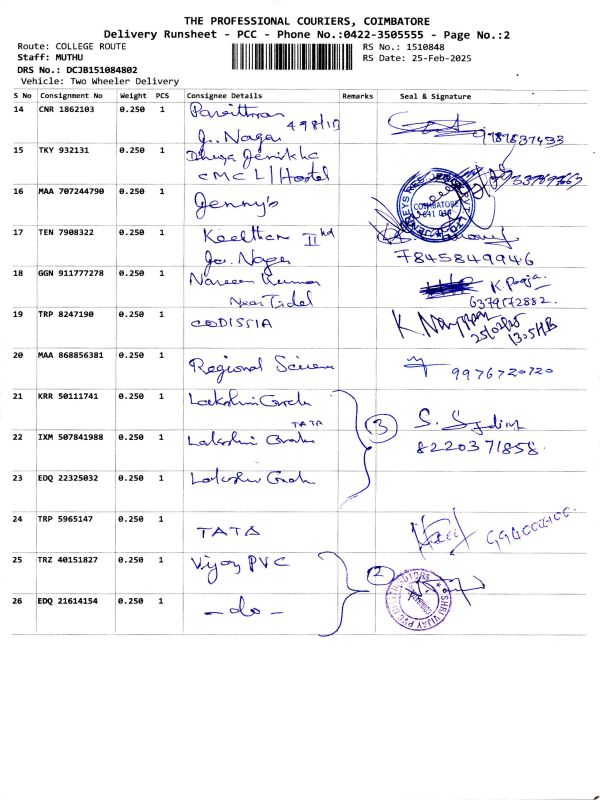 THE PROFESSIONAL COURIERS, COIMBATORE
Delivery Runsheet - PCC - Phone No.:0422-3505555 - Page No.:2
Route: COLLEGE ROUTE
RS No.: 1510848
Staff: MUTHU
RS Date: 25-Feb-2025
DRS No.: DCJB151084802
Vehicle: Two Wheeler Delivery
S No Consignment No Weight PCS Consignee Details Remarks Seal & Signature
14 CNR 1862103 0.250 1
498/10
Nagar
15 TKY 932131 0.250 1
CMC L/Hostel
16 MAA 707244790 0.250 1 Jenny's
COIMBATORE
641 014
17 TEN 7908322 0.250 1 Keerthan IInd
Nagar 7845849946
18 GGN 911777278 0.250 1 Naveen Kumar K. Pooja
Near Tidel 6379172882
19 TRP 8247190 0.250 1 CODISSIA
25/02/25
20 MAA 868856381 0.250 1 Regional Science
9976720120
21 KRR 50111741 0.250 1 Lakshmi
TATA 3 S.
22 IXM 507841988 0.250 1 Lakshmi
8220371858
23 EDQ 22325032 0.250 1 Lakshmi
24 TRP 5965147 0.250 1 TATA
25 TRZ 40151827 0.250 1 Vijay PVC
2
SHRI VIJAY PVC
26 EDQ 21614154 0.250 1 - do -